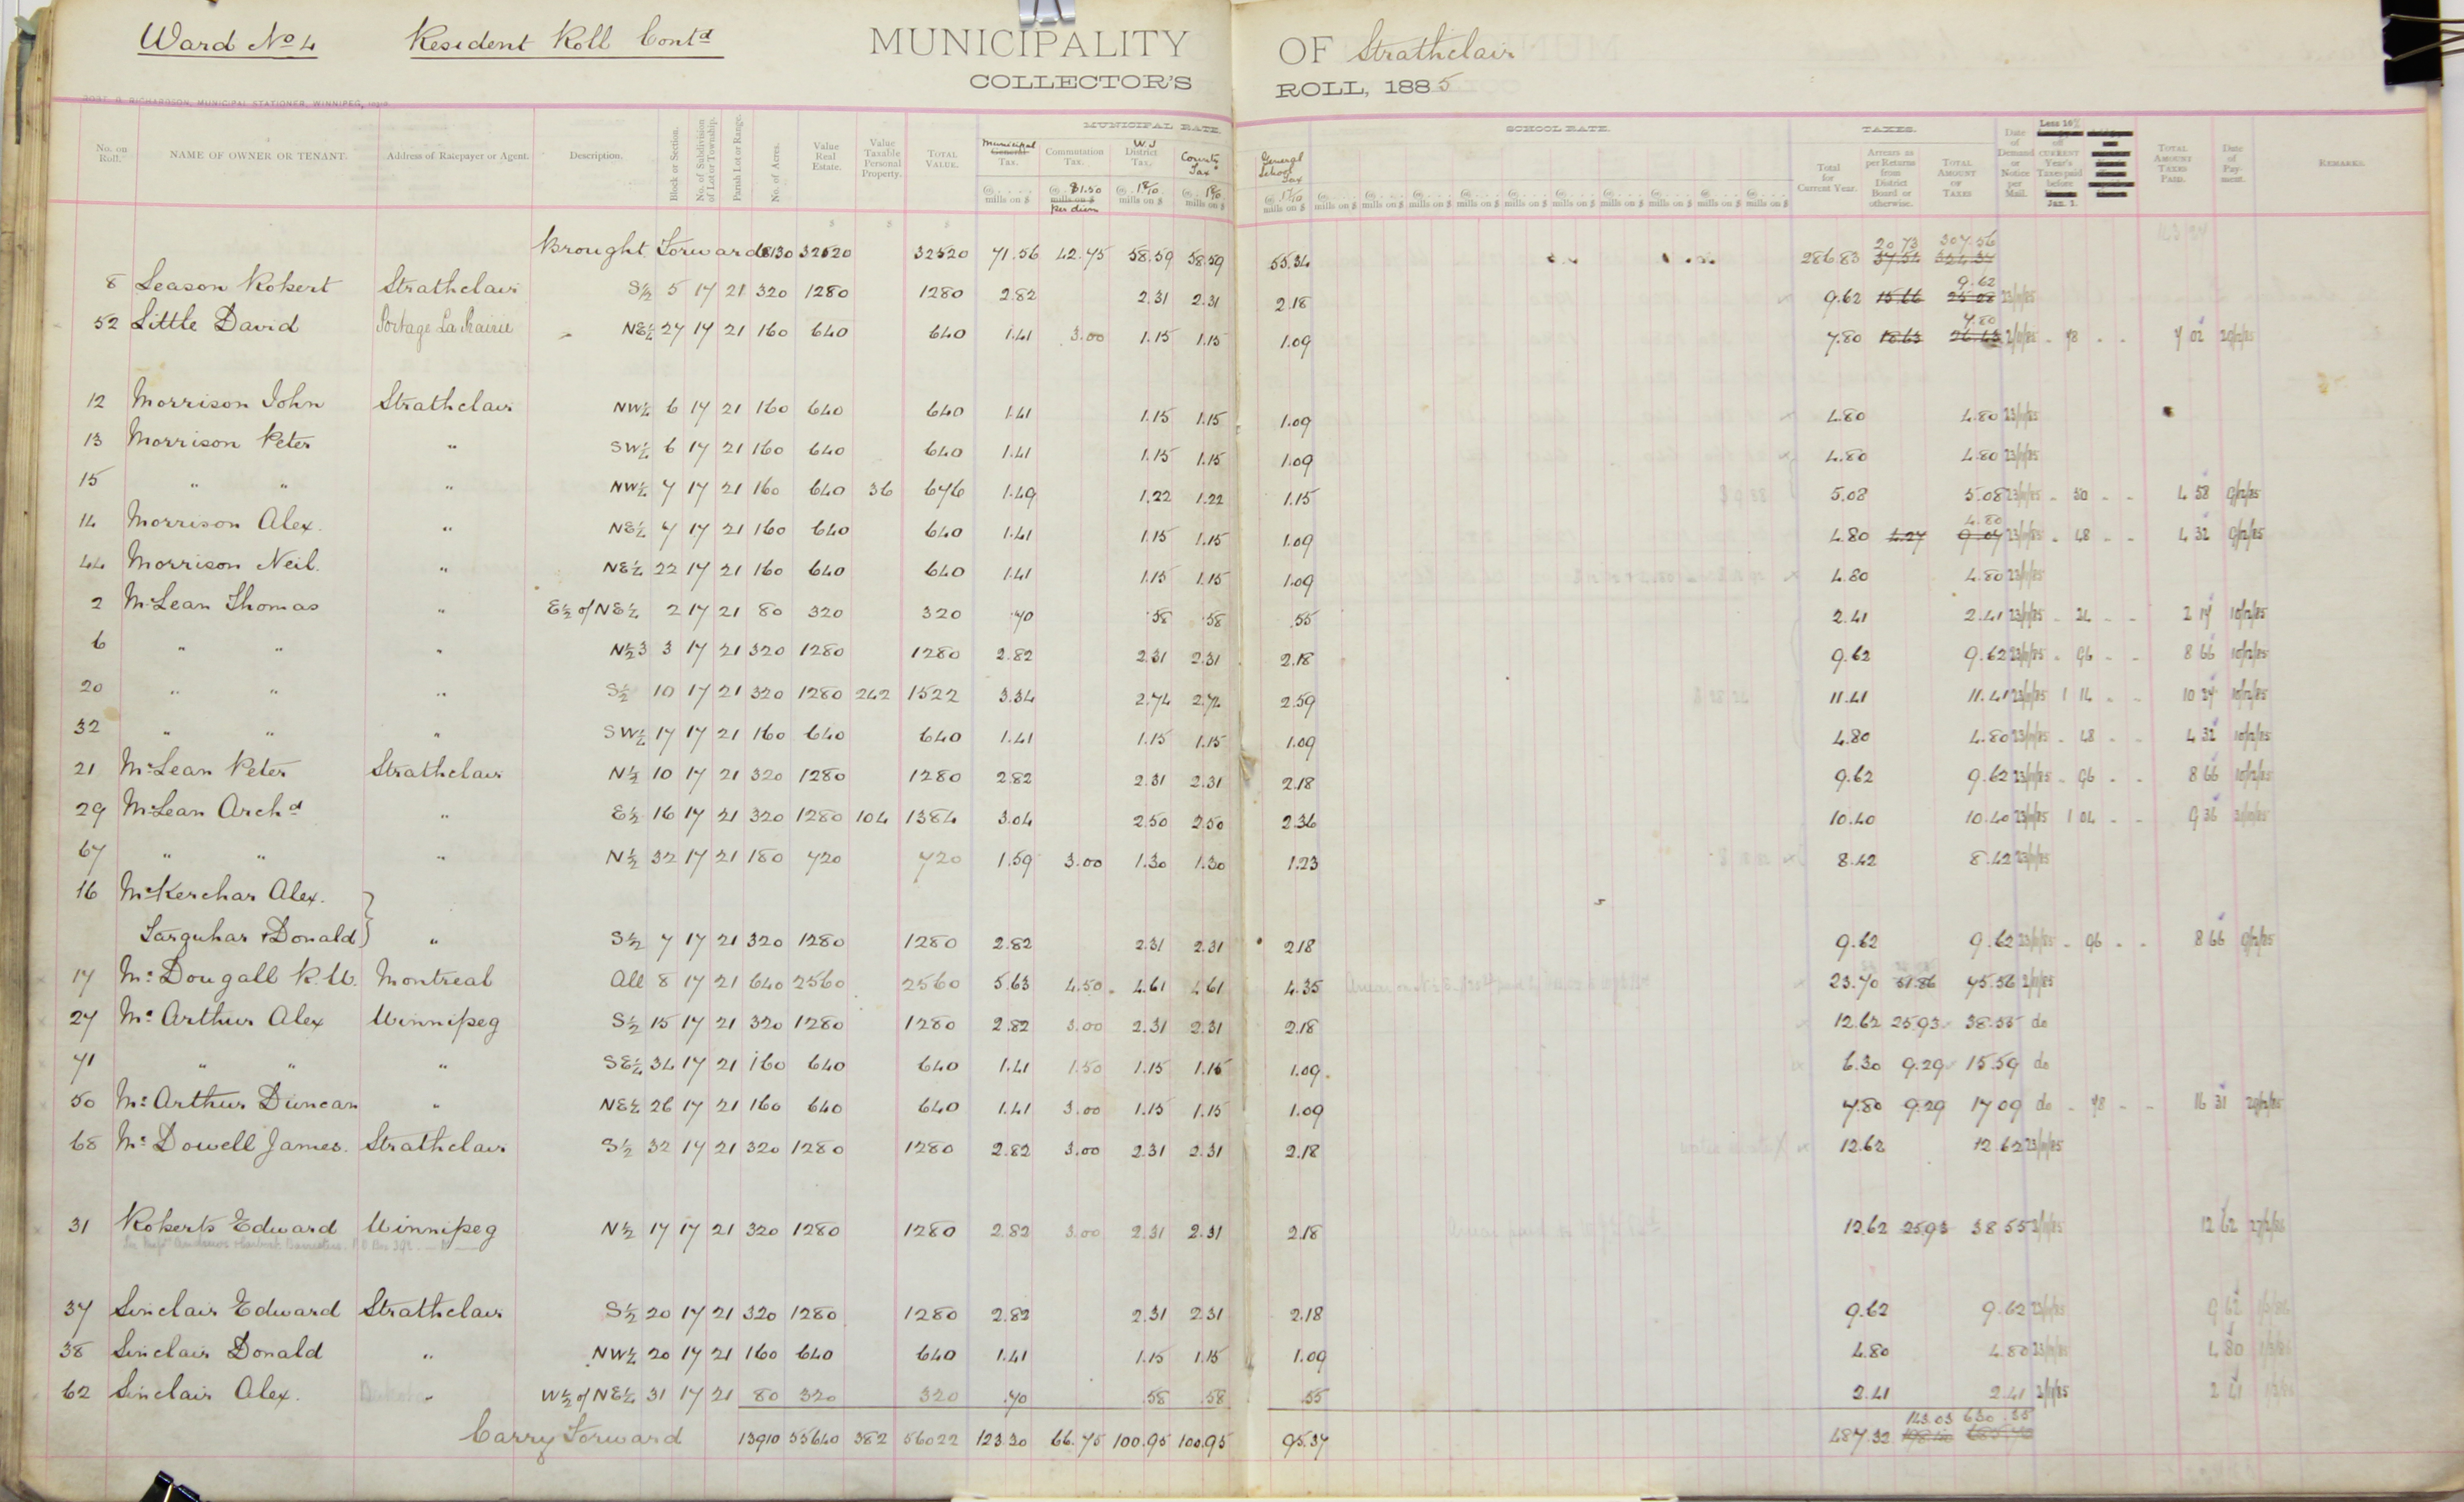 Ward No 4 Resident Roll Contd MUNICIPALITY OF Strathclair
COLLECTOR'S ROLL, 1885
ROBT. D. RICHARDSON, MUNICIPAL STATIONER, WINNIPEG,
MUNICIPAL RATE. SCHOOL RATE. TAXES.
No. on Roll. NAME OF OWNER OR TENANT. Address of Ratepayer or Agent. Description. Block or Section. No. of Subdivision of Lot or Township. Parish Lot or Range. No. of Acres. Value Real Estate. Value Taxable Personal Property. TOTAL VALUE. Municipal General Tax. Commutation Tax. W.J. District Tax. County Tax General School Tax Total for Current Year. Arrears as per Returns from District Board or otherwise. TOTAL AMOUNT OF TAXES Date of Demand or Notice per Mail. Less 10% off CURRENT Year's Taxes paid before Jan. 1. TOTAL AMOUNT TAXES PAID. Date of Payment. REMARKS.
@ mills on $ @ $1.50 mills on $ Per diem @ mills on $ @ mills on $ @ mills on $
Brought Forward 8130 32520 32520 71.56 42.75 58.59 58.59 55.34 286.83 20 73 37.54 307.56
8 Leason Robert Strathclair S½ 5 17 21 320 1280 1280 2.82 2.31 2.31 2.18 9.62 15.66 9.62 25.28 23/11/85
52 Little David Portage La Prairie NE¼ 27 17 21 160 640 640 1.41 3.00 1.15 1.15 1.09 7.80 18.63 7.80 26.43 2/11/85 78 7 02 28/12/85
12 Morrison John Strathclair NW¼ 6 17 21 160 640 640 1.41 1.15 1.15 1.09 4.80 4.80 23/11/85
13 Morrison Peter " SW¼ 6 17 21 160 640 640 1.41 1.15 1.15 1.09 4.80 4.80 23/11/85
15 " " " NW¼ 7 17 21 160 640 36 676 1.49 1.22 1.22 1.15 5.08 5.08 23/11/85 50 4 58 9/12/85
14 Morrison Alex. " NE¼ 7 17 21 160 640 640 1.41 1.15 1.15 1.09 4.80 4.27 4.80 9.07 23/11/85 48 4 32 9/12/85
44 Morrison Neil. " NE¼ 22 17 21 160 640 640 1.41 1.15 1.15 1.09 4.80 4.80 23/11/85
2 McLean Thomas " E½ of NE¼ 2 17 21 80 320 320 .70 .58 .58 .55 2.41 2.41 23/11/85 24 2 17 10/12/85
6 " " " N½ 3 3 17 21 320 1280 1280 2.82 2.31 2.31 2.18 9.62 9.62 23/11/85 96 8 66 10/12/85
20 " " " S½ 10 17 21 320 1280 242 1522 3.34 2.74 2.74 2.59 11.41 11.41 23/11/85 1 14 10 27 10/12/85
32 " " " SW¼ 17 17 21 160 640 640 1.41 1.15 1.15 1.09 4.80 4.80 23/11/85 48 4 32 10/12/85
21 McLean Peter Strathclair N½ 10 17 21 320 1280 1280 2.82 2.31 2.31 2.18 9.62 9.62 23/11/85 96 8 66 10/12/85
29 McLean Archd " E½ 16 17 21 320 1280 104 1384 3.04 2.50 2.50 2.36 10.40 10.40 23/11/85 1 04 9 36
67 " " " N½ 32 17 21 180 720 720 1.59 3.00 1.30 1.30 1.23 8.42 8.42 23/11/85
16 McKerchar Alex.
Farquhar & Donald } " S½ 7 17 21 320 1280 1280 2.82 2.31 2.31 2.18 9.62 9.62 23/11/85 96 8 66 9/12/85
17 McDougall R.W. Montreal All 8 17 21 640 2560 2560 5.63 4.50 4.61 4.61 4.35 23.70 51.86 75.56 2/11/85
27 McArthur Alex Winnipeg S½ 15 17 21 320 1280 1280 2.82 3.00 2.31 2.31 2.18 12.62 25.93 38.55 do
71 " " " SE¼ 34 17 21 160 640 640 1.41 1.50 1.15 1.15 1.09 6.30 9.29 15.59 do
50 McArthur Duncan " NE¼ 26 17 21 160 640 640 1.41 3.00 1.15 1.15 1.09 7.80 9.29 17 09 do 78 16 31 28/12/85
68 McDowell James. Strathclair S½ 32 17 21 320 1280 1280 2.82 3.00 2.31 2.31 2.18 12.62 12.62 23/11/85
31 Roberts Edward Winnipeg N½ 17 17 21 320 1280 1280 2.82 3.00 2.31 2.31 2.18 12.62 25.93 38 55 2/11/85 12 62 27/2/86
37 Sinclair Edward Strathclair S½ 20 17 21 320 1280 1280 2.82 2.31 2.31 2.18 9.62 9.62 23/11/85 9 62
38 Sinclair Donald " NW¼ 20 17 21 160 640 640 1.41 1.15 1.15 1.09 4.80 4.80 23/11/85 4 80
62 Sinclair Alex. " W½ of NE¼ 31 17 21 80 320 320 .70 .58 .58 .55 2.41 2.41 2/11/85 2 41
Carry Forward 13910 55640 382 56022 123.30 66.75 100.95 100.95 95.37 487.32 143.03 630.35